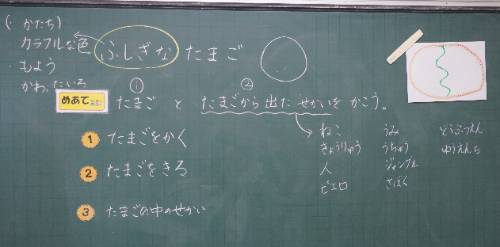 (・かたち
カラフルな色
・もよう
かわったいろ
ふしぎな たまご
① ②
めあて たまご と たまごから 出た せかいを かこう。
1 たまごをかく
2 たまごをきる
3 たまごの中のせかい
ねこ うみ どうぶつえん
きょうりゅう うちゅう ゆうえんち
人 ジャングル
ピエロ さばく